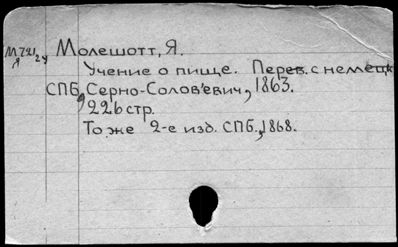 Молешотт, Я.
Учение о пище. Перев. с немецк
СПБ, Серно-Солов'евич, 1863.
226 стр.
То же 2-е изд. СПБ., 1868.